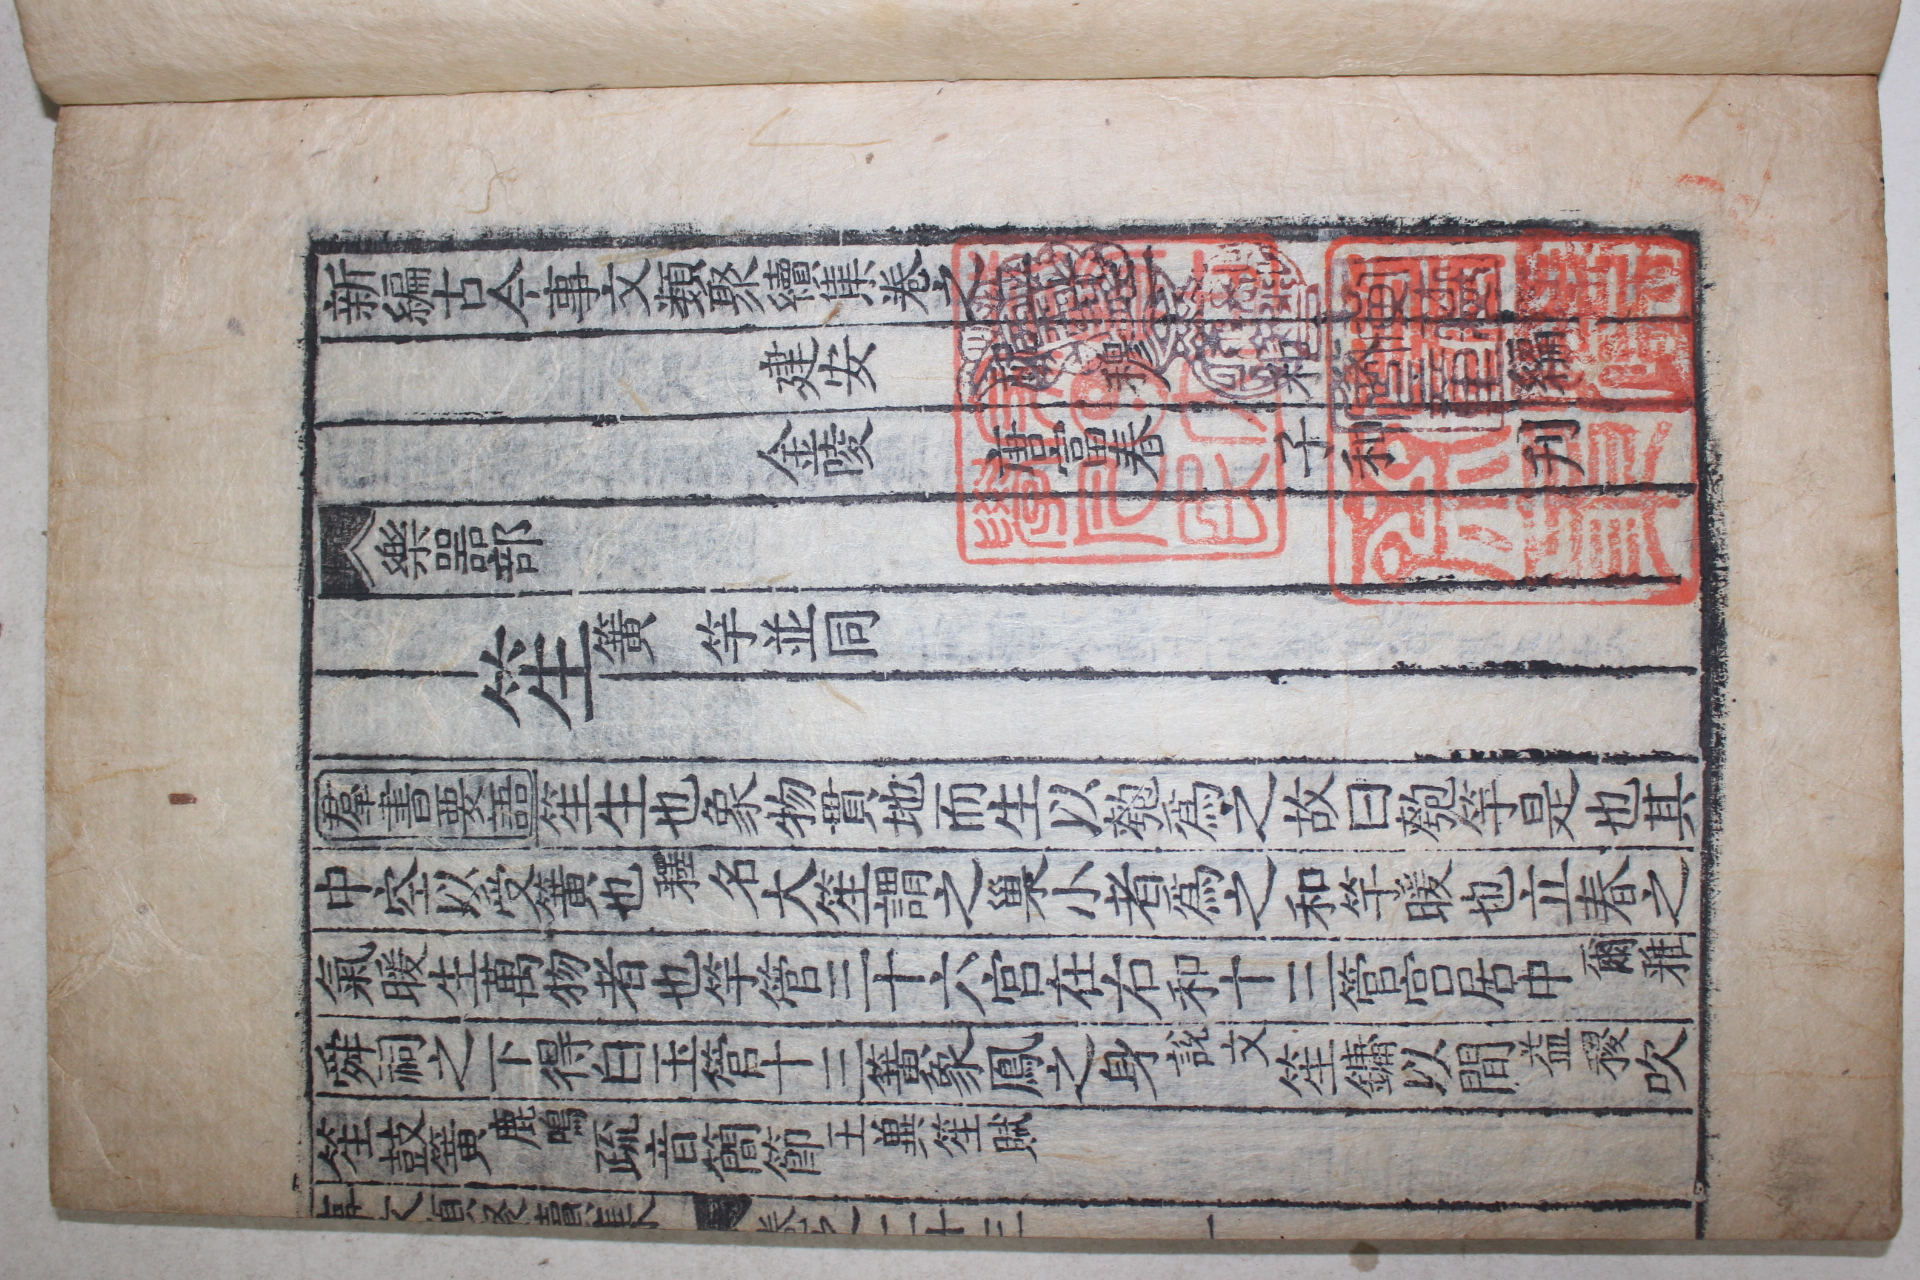 新編古今事文類聚續集卷之二十三
建安 祝 穆 和父 編
金陵 唐富春 子和 刊
樂器部
笙 簧 竽並同
羣書要語 笙生也象物貫地而生以匏爲之故曰匏竽是也其
中空以受簧也 釋名 大笙謂之巢小者爲之和竽暖也立春之
氣暖生萬物者也竽管三十六宮在右和十三管宮居中 爾雅
舜祠之下得白玉管十三簧象鳳之身 說文 笙鏞以間 益稷 吹
笙鼓簧 鹿鳴 疏音簡節 王襃笙賦
事文類聚續集 卷之二十三 一